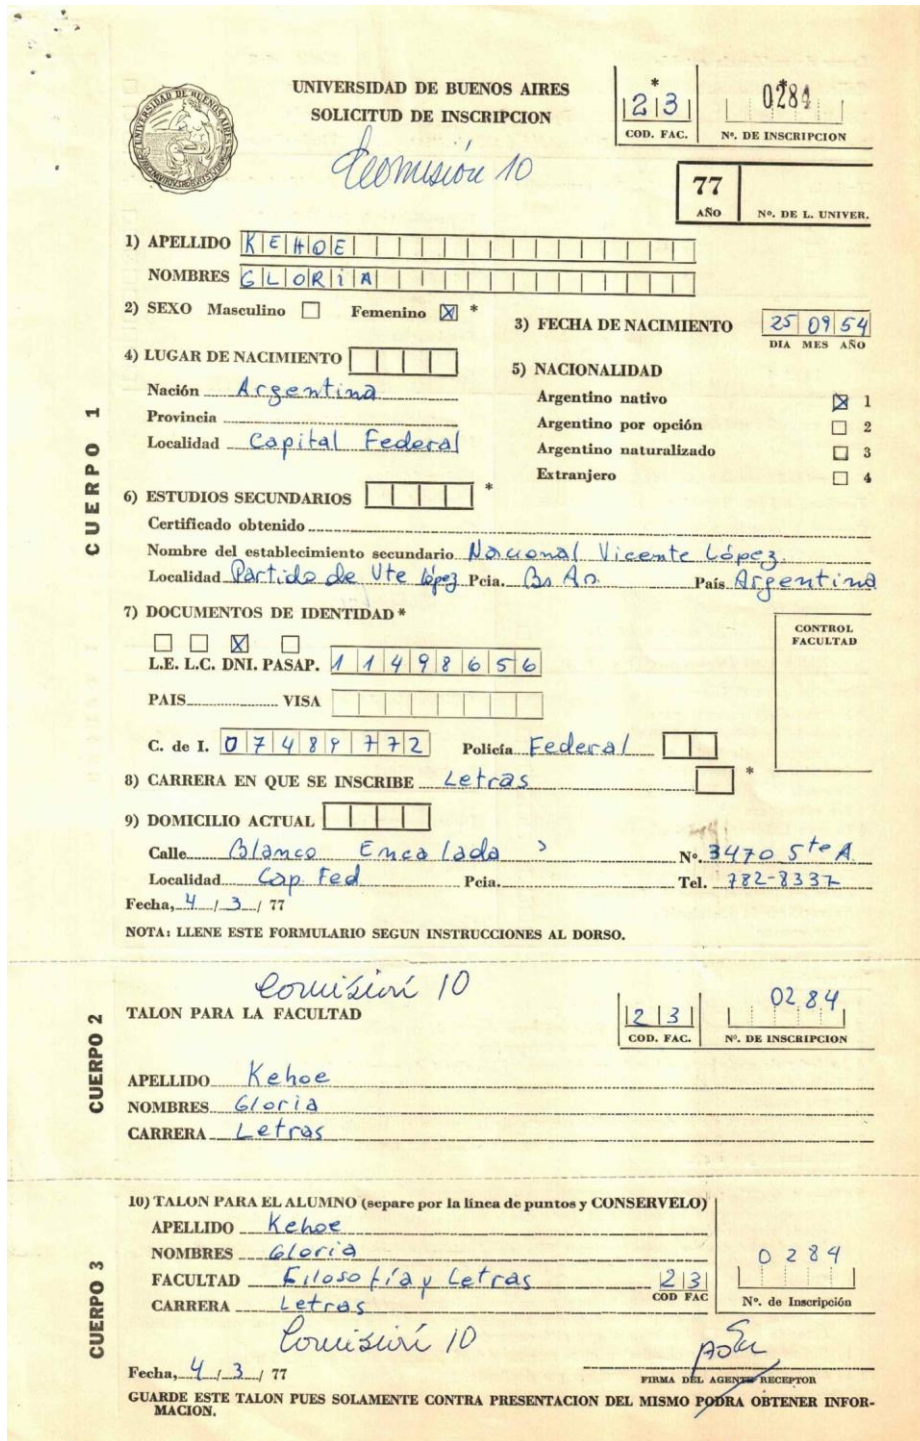 UNIVERSIDAD DE BUENOS AIRES
SOLICITUD DE INSCRIPCION
Comisión 10
* 2 3
COD. FAC.
* 0284
Nº. DE INSCRIPCION
77
AÑO
Nº. DE L. UNIVER.
CUERPO 1
1) APELLIDO KEHOE
NOMBRES GLORIA
2) SEXO Masculino Femenino X *
3) FECHA DE NACIMIENTO 25 09 54
DIA MES AÑO
4) LUGAR DE NACIMIENTO
Nación Argentina
Provincia
Localidad Capital Federal
5) NACIONALIDAD
Argentino nativo X 1
Argentino por opción 2
Argentino naturalizado 3
Extranjero 4
6) ESTUDIOS SECUNDARIOS *
Certificado obtenido
Nombre del establecimiento secundario Nacional Vicente López
Localidad Partido de Vte López Pcia. Bs As País Argentina
7) DOCUMENTOS DE IDENTIDAD *
X
L.E. L.C. DNI. PASAP. 11498656
PAIS VISA
C. de I. 07489772 Policía Federal
CONTROL
FACULTAD
8) CARRERA EN QUE SE INSCRIBE Letras *
9) DOMICILIO ACTUAL
Calle Blanco Encalada Nº. 3470 5to A
Localidad Cap Fed Pcia. Tel. 782-8337
Fecha, 4 / 3 / 77
NOTA: LLENE ESTE FORMULARIO SEGUN INSTRUCCIONES AL DORSO.
CUERPO 2
Comisión 10
TALON PARA LA FACULTAD
2 3
COD. FAC.
0284
Nº. DE INSCRIPCION
APELLIDO Kehoe
NOMBRES Gloria
CARRERA Letras
CUERPO 3
10) TALON PARA EL ALUMNO (separe por la línea de puntos y CONSERVELO)
APELLIDO Kehoe
NOMBRES Gloria
FACULTAD Filosofía y Letras 2 3
COD FAC
CARRERA Letras
0284
Nº. de Inscripción
Comisión 10
Fecha, 4 / 3 / 77
FIRMA DEL AGENTE RECEPTOR
GUARDE ESTE TALON PUES SOLAMENTE CONTRA PRESENTACION DEL MISMO PODRA OBTENER INFOR-
MACION.